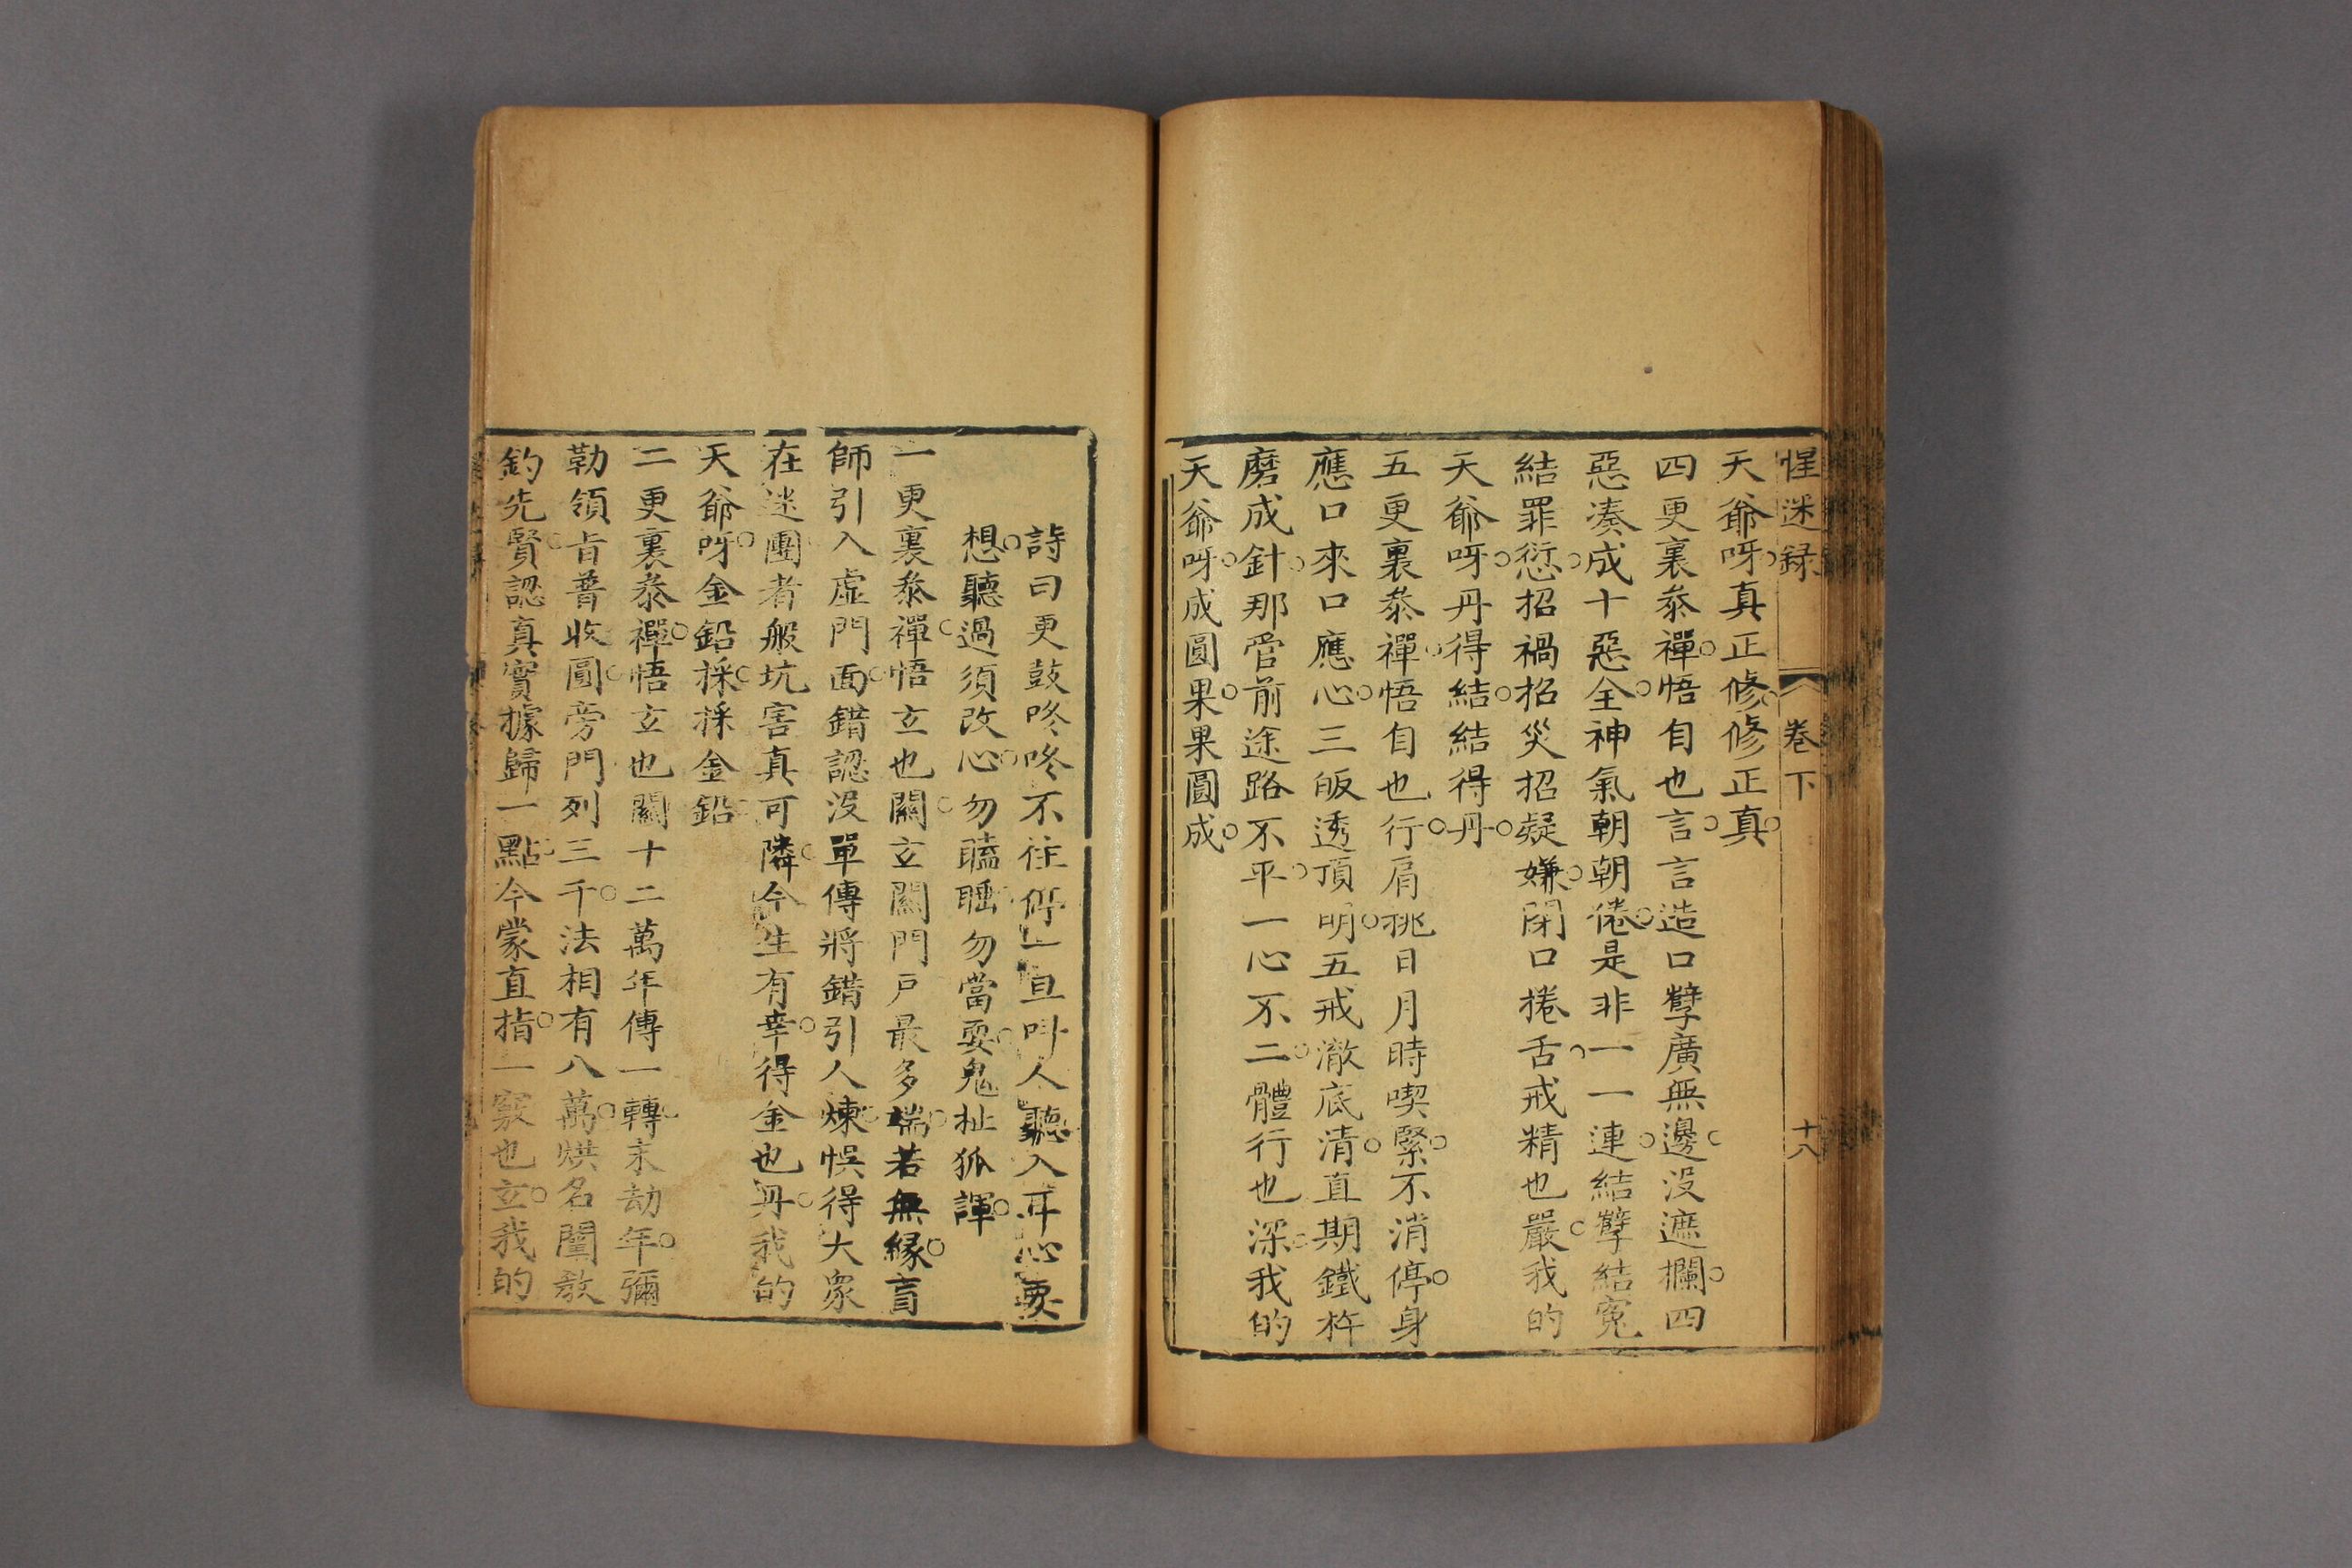 惺迷録 卷下 十八
天爺呀。真正修。修正真。
四更裏叅禪。悟自也言。言造口孽廣無邊。没遮攔。四
惡凑成十惡全。神氣朝朝倦。是非一一連。結孽結寃
結罪愆。招禍招災招疑嫌。閉口捲舌。戒精也嚴。我的
天爺呀。丹得結。結得丹。
五更裏叅禪。悟自也行。肩挑日月時喫緊。不消停。身
應口來口應心。三皈透頂明。五戒澈底清。直期鐵杵
磨成針。那管前途路不平。一心不二。體行也深。我的
天爺呀。成圓果。果圓成。
詩曰更鼓咚咚不往停一旦呌人聽入耳心要
想。聽過須改心。勿瞌睡。勿當耍。鬼扯狐諢。
一更裏叅禪。悟玄也關。玄關門戶最多端。若無緣。盲
師引入虛門面。錯認没單傳。將錯引人煉。悞得大衆
在迷團。者般坑害真可隣。今生有幸。得金也丹。我的
天爺呀。金鉛採。採金鉛
二更裏叅禪。悟玄也關。十二萬年傳一轉。末劫年。彌
勒領旨普收圓。旁門列三千。法相有八萬。烘名闡教
釣先賢。認真實據歸一點。今蒙直指。一竅也玄。我的